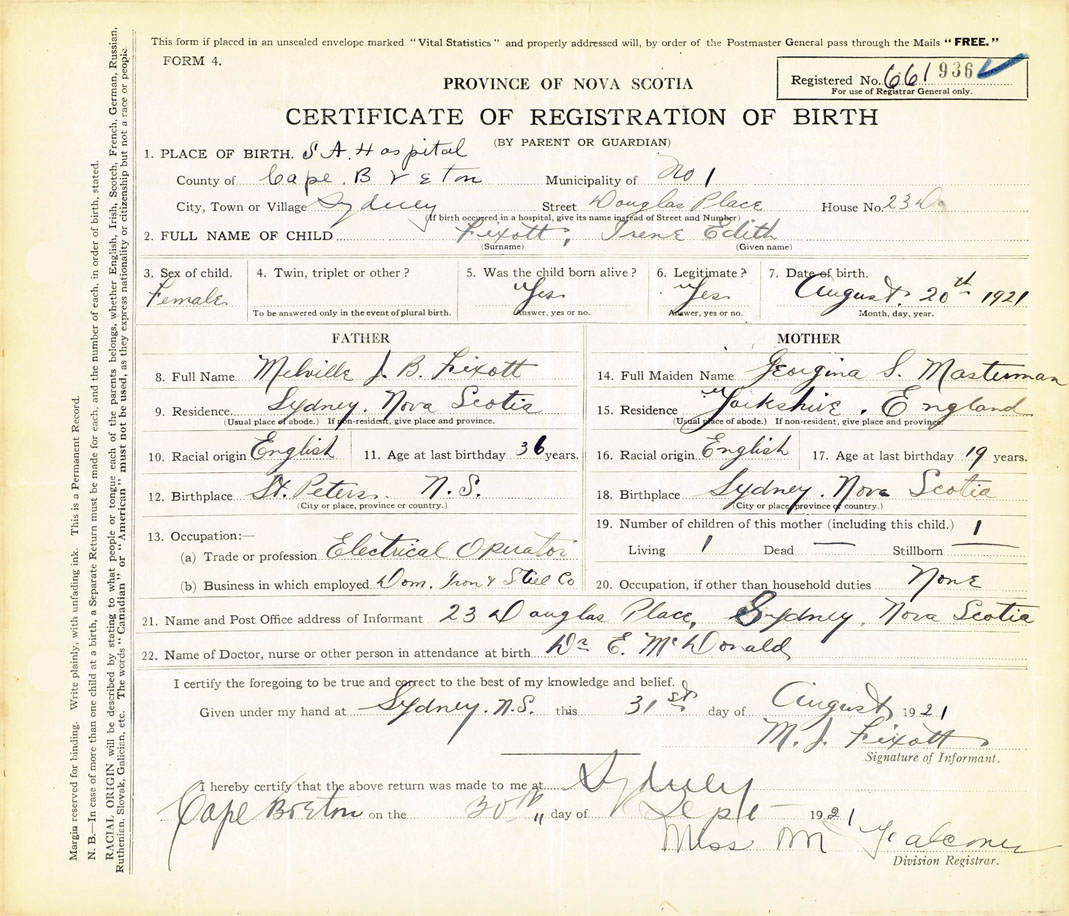 This form if placed in an unsealed envelope marked "Vital Statistics" and properly addressed will, by order of the Postmaster General pass through the Mails "FREE."
FORM 4.
Registered No. 661936
For use of Registrar General only.
PROVINCE OF NOVA SCOTIA
CERTIFICATE OF REGISTRATION OF BIRTH
(BY PARENT OR GUARDIAN)
1. PLACE OF BIRTH. S A Hospital
County of Cape Breton Municipality of No 1
City, Town or Village Sydney Street Douglas Place House No. 23
(If birth occurred in a hospital, give its name instead of Street and Number)
2. FULL NAME OF CHILD Fixott, Irene Edith
(Surname) (Given name)
3. Sex of child. 4. Twin, triplet or other? 5. Was the child born alive? 6. Legitimate? 7. Date of birth.
Female Yes Yes August 20th 1921
To be answered only in the event of plural birth. Answer, yes or no. Answer, yes or no. Month, day, year.
FATHER MOTHER
8. Full Name Melville J. B. Fixott 14. Full Maiden Name Georgina S. Masterman
9. Residence Sydney. Nova Scotia 15. Residence Yorkshire. England
(Usual place of abode.) If non-resident, give place and province. (Usual place of abode.) If non-resident, give place and province.
10. Racial origin English 11. Age at last birthday 36 years. 16. Racial origin English 17. Age at last birthday 19 years.
12. Birthplace St. Peters. N.S. 18. Birthplace Sydney. Nova Scotia
(City or place, province or country.) (City or place, province or country.)
13. Occupation:— 19. Number of children of this mother (including this child.) 1
(a) Trade or profession Electrical Operator Living 1 Dead — Stillborn —
(b) Business in which employed Dom. Iron & Steel Co 20. Occupation, if other than household duties None
21. Name and Post Office address of Informant 23 Douglas Place, Sydney, Nova Scotia
22. Name of Doctor, nurse or other person in attendance at birth Dr E. McDonald
I certify the foregoing to be true and correct to the best of my knowledge and belief.
Given under my hand at Sydney. N.S. this 31st day of August 1921
M. J. Fixott
Signature of Informant.
I hereby certify that the above return was made to me at Sydney
Cape Breton on the 30th day of Sept 1921
Miss M Falconer
Division Registrar.
Margin reserved for binding. Write plainly, with unfading ink. This is a Permanent Record.
N. B.—In case of more than one child at a birth, a Separate Return must be made for each, and the number of each, in order of birth, stated.
RACIAL ORIGIN will be described by stating to what people or tongue each of the parents belongs, whether English, Irish, Scotch, French, German, Russian,
Ruthenian, Slovak, Galician, etc. The words "Canadian" or "American" must not be used, as they express nationality or citizenship but not a race or people